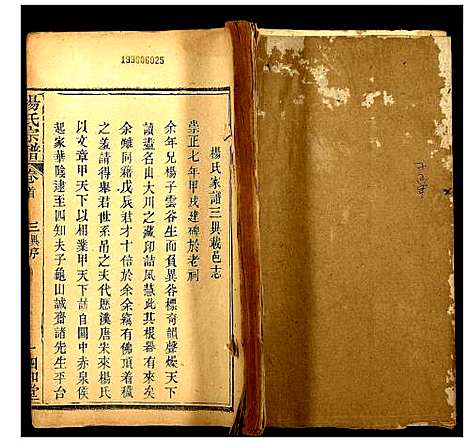 193006025
楊氏家譜三興載邑志
崇正七年甲戌建碑於老祠
余年兄楊子雲谷生而負異谷標奇韻聲燦天下
讀盡名山大川之藏印詰風慧此其根器有來矣
余雖同籍戊辰君才十倍於余余竊有佛頂着穢
之羞請得世君世系吊之夫代歷漢唐宋來楊氏
以文章甲天下以相業甲天下諸自關中赤泉侯
起家華陰逮至四知夫子龜山誠齋諸先生平台
楊氏宗譜
卷首
三興序
一
四知堂